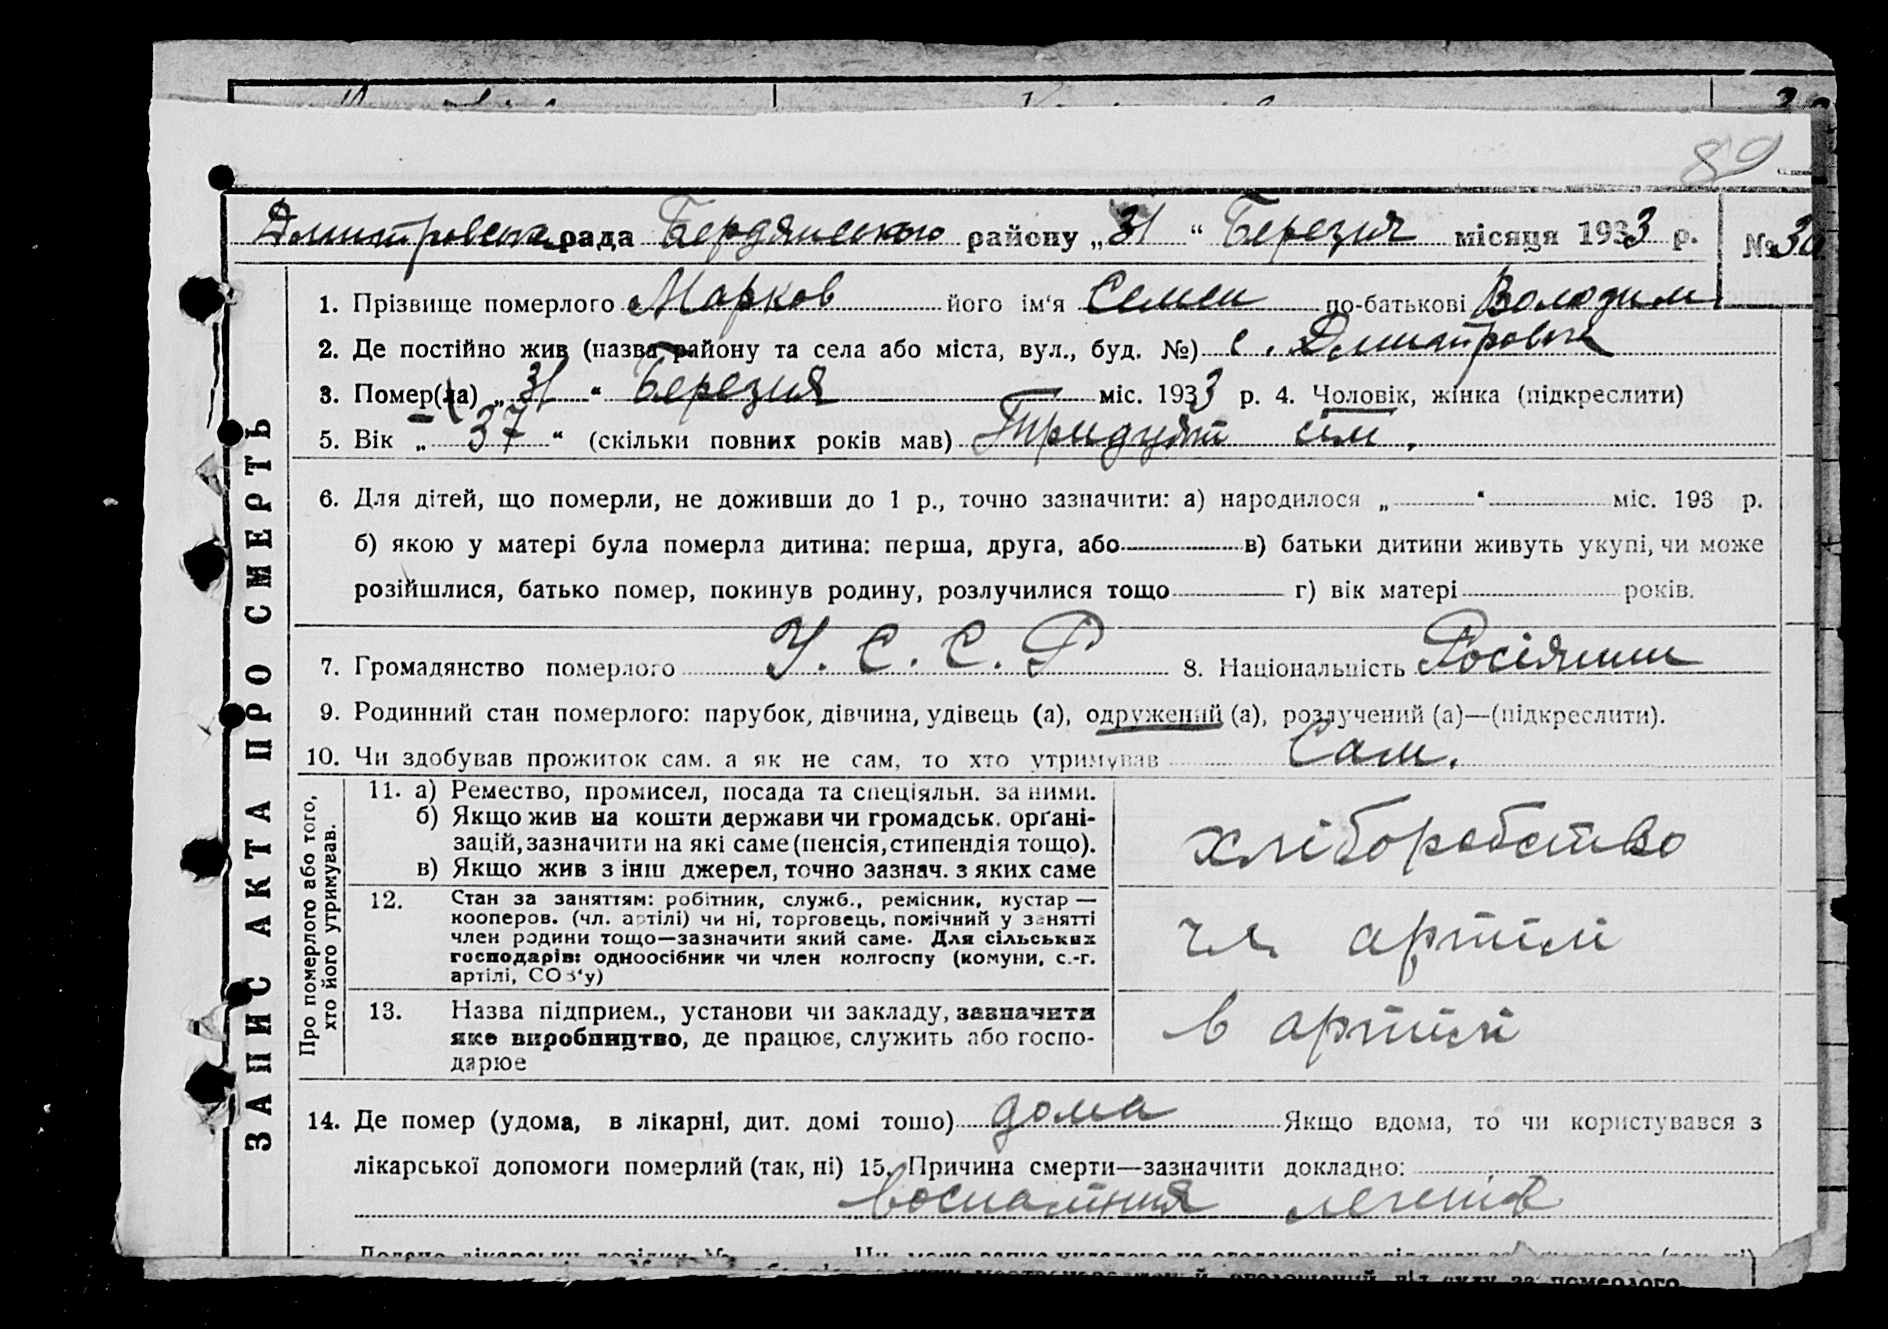 89
Дмитровска рада Бердянського району „31“ Березня місяця 1933 р. № 30
1. Прізвище померлого Марков його ім‘я Семен по-батькові Володим
2. Де постійно жив (назва району та села або міста, вул., буд. №) с. Дмитровка
3. Помер(ла) „31“ Березня міс. 1933 р. 4. Чоловік, жінка (підкреслити)
5. Вік „37“ (скільки повних років мав) Тридцять сім.
6. Для дітей, що померли, не доживши до 1 р., точно зазначити: а) народилося „ “ міс. 193 р.
б) якою у матері була померла дитина: перша, друга, або в) батьки дитини живуть укупі, чи може
розійшлися, батько помер, покинув родину, розлучилися тощо г) вік матері років.
7. Громадянство померлого У. С. С. Р 8. Національність Росіянин
9. Родинний стан померлого: парубок, дівчина, удівець (а), одружений (а), розлучений (а)—(підкреслити).
10. Чи здобував прожиток сам. а як не сам, то хто утримував Сам.
11. а) Ремество, промисел, посада та спеціяльн. за ними.
б) Якщо жив на кошти держави чи громадськ. орґані-
зацій, зазначити на які саме (пенсія, стипендія тощо).
в) Якщо жив з інш джерел, точно зазнач. з яких саме
хліборобство
12. Стан за заняттям: робітник, служб., ремісник, кустар —
кооперов. (чл. артілі) чи ні, торговець, помічний у занятті
член родини тощо—зазначити який саме. Для сільських
господарів: одноосібник чи член колгоспу (комуни, с.-г.
артілі, СОЗ‘у)
чл артілі
13. Назва підприєм., установи чи закладу, зазначити
яке виробництво, де працює, служить або госпо-
дарює
в артілі
Про померлого або того,
хто його утримував.
ЗАПИС АКТА ПРО СМЕРТЬ
14. Де помер (удома, в лікарні, дит. домі тошо) дома Якщо вдома, то чи користувався з
лікарської допомоги померлий (так, ні) 15. Причина смерти—зазначити докладно:
воспаління легенів